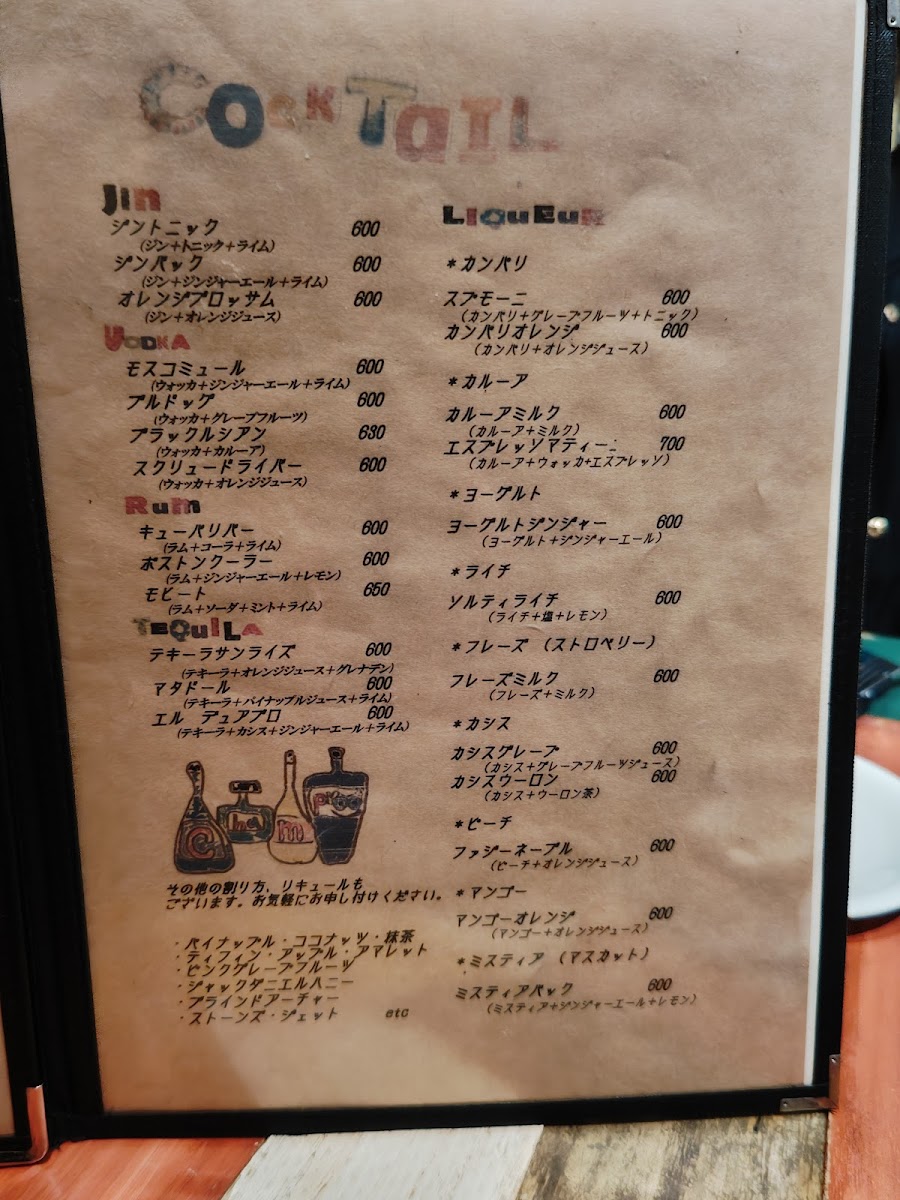 COCKTAIL
JIN
ジントニック 600
(ジン+トニック+ライム)
ジンバック 600
(ジン+ジンジャーエール+ライム)
オレンジブロッサム 600
(ジン+オレンジジュース)
VODKA
モスコミュール 600
(ウォッカ+ジンジャーエール+ライム)
ブルドッグ 600
(ウォッカ+グレープフルーツ)
ブラックルシアン 630
(ウォッカ+カルーア)
スクリュードライバー 600
(ウォッカ+オレンジジュース)
Rum
キューバリバー 600
(ラム+コーラ+ライム)
ボストンクーラー 600
(ラム+ジンジャーエール+レモン)
モヒート 650
(ラム+ソーダ+ミント+ライム)
TEQUILA
テキーラサンライズ 600
(テキーラ+オレンジジュース+グレナデン)
マタドール 600
(テキーラ+パイナップルジュース+ライム)
エル デュアブロ 600
(テキーラ+カシス+ジンジャーエール+ライム)
その他の割り方、リキュールも
ございます。お気軽にお申し付けください。
・パイナップル・ココナッツ・抹茶
・ティフィン・アップル・アマレット
・ピンクグレープフルーツ
・ジャックダニエルハニー
・ブラインドアーチャー
・ストーンズ・ジェット etc
LIQUEUR
*カンパリ
スプモーニ 600
(カンパリ+グレープフルーツ+トニック)
カンパリオレンジ 600
(カンパリ+オレンジジュース)
*カルーア
カルーアミルク 600
(カルーア+ミルク)
エスプレッソマティーニ 700
(カルーア+ウォッカ+エスプレッソ)
*ヨーグルト
ヨーグルトジンジャー 600
(ヨーグルト+ジンジャーエール)
*ライチ
ソルティライチ 600
(ライチ+塩+レモン)
*フレーズ (ストロベリー)
フレーズミルク 600
(フレーズ+ミルク)
*カシス
カシスグレープ 600
(カシス+グレープフルーツジュース)
カシスウーロン 600
(カシス+ウーロン茶)
*ピーチ
ファジーネーブル 600
(ピーチ+オレンジジュース)
*マンゴー
マンゴーオレンジ 600
(マンゴー+オレンジジュース)
*ミスティア (マスカット)
ミスティアバック 600
(ミスティア+ジンジャーエール+レモン)